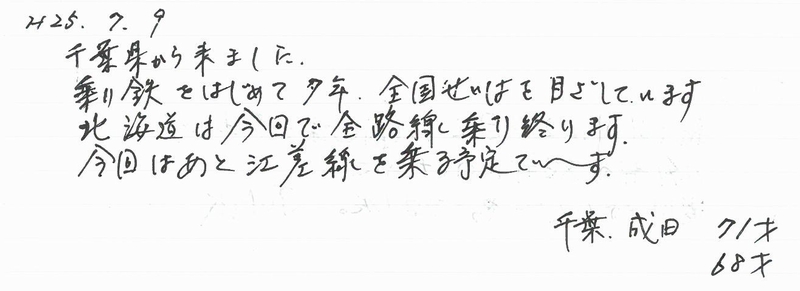 H25. 7. 9
千葉県から来ました.
乗り鉄をはじめて夕年. 全国せいはを目ざしています
北海道は今回で全路線乗り終ります.
今回はあと江差線を乗る予定で〜す.
千葉. 成田 71才
68才